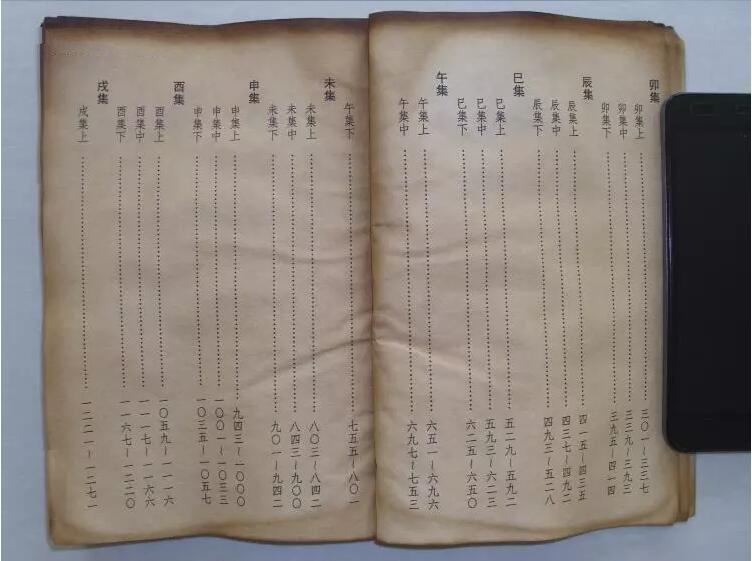 卯集
卯集上……三〇一～三三七
卯集中……三三九～三九三
卯集下……三九五～四一四
辰集
辰集上……四一五～四三五
辰集中……四三七～四九二
辰集下……四九三～五二八
巳集
巳集上……五二九～五九二
巳集中……五九三～六二三
巳集下……六二五～六五〇
午集
午集上……六五一～六九六
午集中……六九七～七五三
午集下……七五五～八〇一
未集
未集上……八〇三～八四二
未集中……八四三～九〇〇
未集下……九〇一～九四二
申集
申集上……九四三～一〇〇〇
申集中……一〇〇一～一〇三三
申集下……一〇三五～一〇五七
酉集
酉集上……一〇五九～一一一六
酉集中……一一一七～一一六六
酉集下……一一六七～一二二〇
戌集
戌集上……一二二一～一二七一